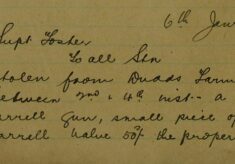 6th Jan
Supt Foster
To all Stn
tolen from Duads Farm
between 2nd & 4th inst - a
arrell gun, small piece of
arrell value 50/- the proper